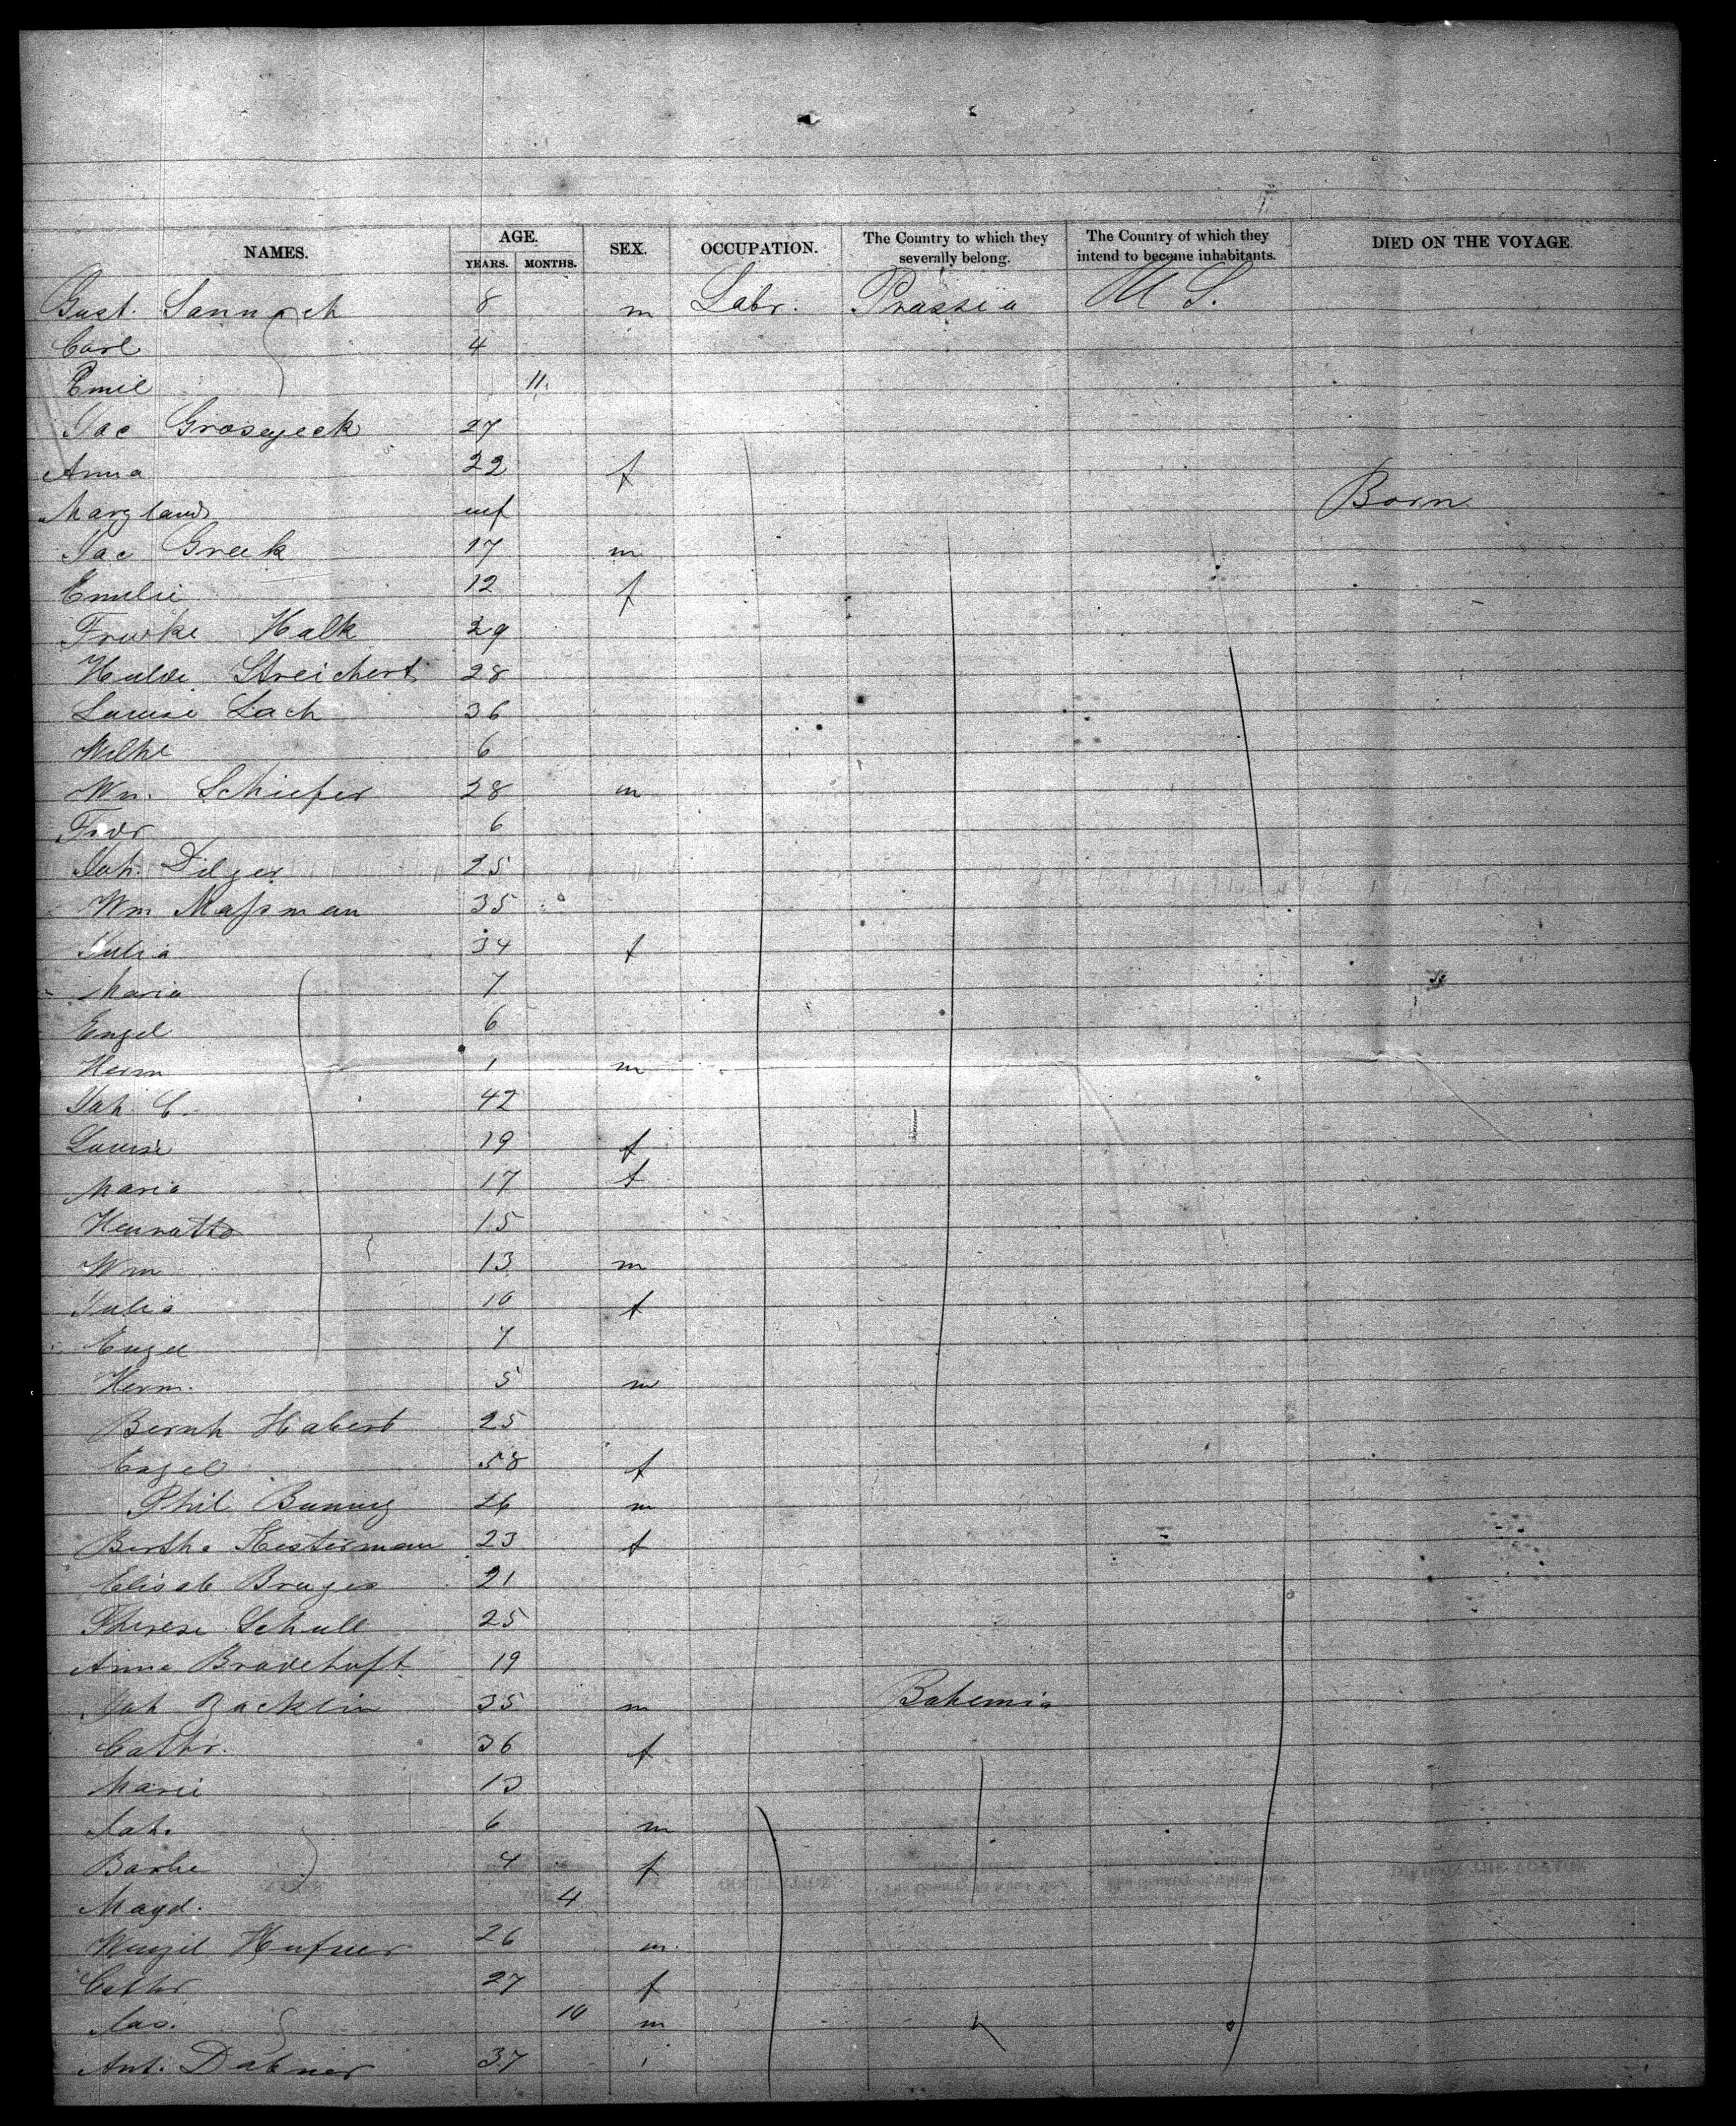 NAMES. AGE. SEX. OCCUPATION. The Country to which they severally belong. The Country of which they intend to become inhabitants. DIED ON THE VOYAGE.
YEARS. MONTHS.
Gust. Sannoch 8 m Labr. Prussia U S.
Carl 4
Emil 11.
Jac Grosejeck 27
Anna 22 f
inf Born
Jac Greek 17 m
Emilie 12 f
Frwke Halk 29
Hulde Streichert 28
Louise Lach 36
Wilhe 6
Wm. Schiefer 28 m
Fredr 6
Joh. Dilger 25
Wm Massman 35
Julia 34 f
Maria 7
Engel 6
Herm 1 m
Joh C. 42
Louise 19 f
Maria 17 f
15
Wm 13 m
Julia 10 f
Engel 7
Herm. 5 m
Bernh Habert 25
Engel 58 f
Phil Buning 26 m
Bertha Kesterman 23 f
Elisab Bruges 21
Therese Schull 25
Anna Bradehoft 19
Joh Zacklin 35 m Bohemia
Cathr. 36 f
Marie 13
Joh. 6 m
Barbe 4 f
Magd. 4
Wenzel Hufner 26 m.
Cathr 27 f
Jac. 10 m
Ant. Dabner 37